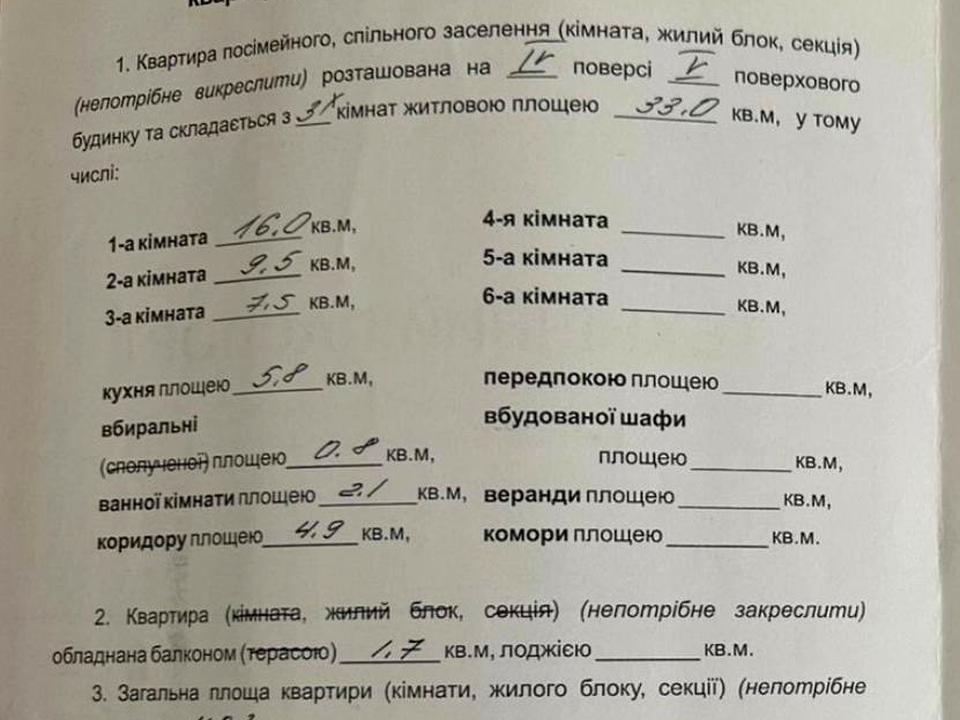 1. Квартира посімейного, спільного заселення (кімната, жилий блок, секція)
(непотрібне викреслити) розташована на IV поверсі V поверхового
будинку та складається з 3х кімнат житловою площею 33,0 кв.м, у тому
числі:
1-а кімната 16,0 кв.м, 4-я кімната ______ кв.м,
2-а кімната 9,5 кв.м, 5-а кімната ______ кв.м,
3-а кімната 7,5 кв.м, 6-а кімната ______ кв.м,
кухня площею 5,8 кв.м, передпокою площею ______ кв.м,
вбиральні вбудованої шафи
(сполученої) площею 0.8 кв.м, площею ______ кв.м,
ванної кімнати площею 2.1 кв.м, веранди площею ______ кв.м,
коридору площею 4.9 кв.м, комори площею ______ кв.м.
2. Квартира (кімната, жилий блок, секція) (непотрібне закреслити)
обладнана балконом (терасою) 1,7 кв.м, лоджією ______ кв.м.
3. Загальна площа квартири (кімнати, жилого блоку, секції) (непотрібне